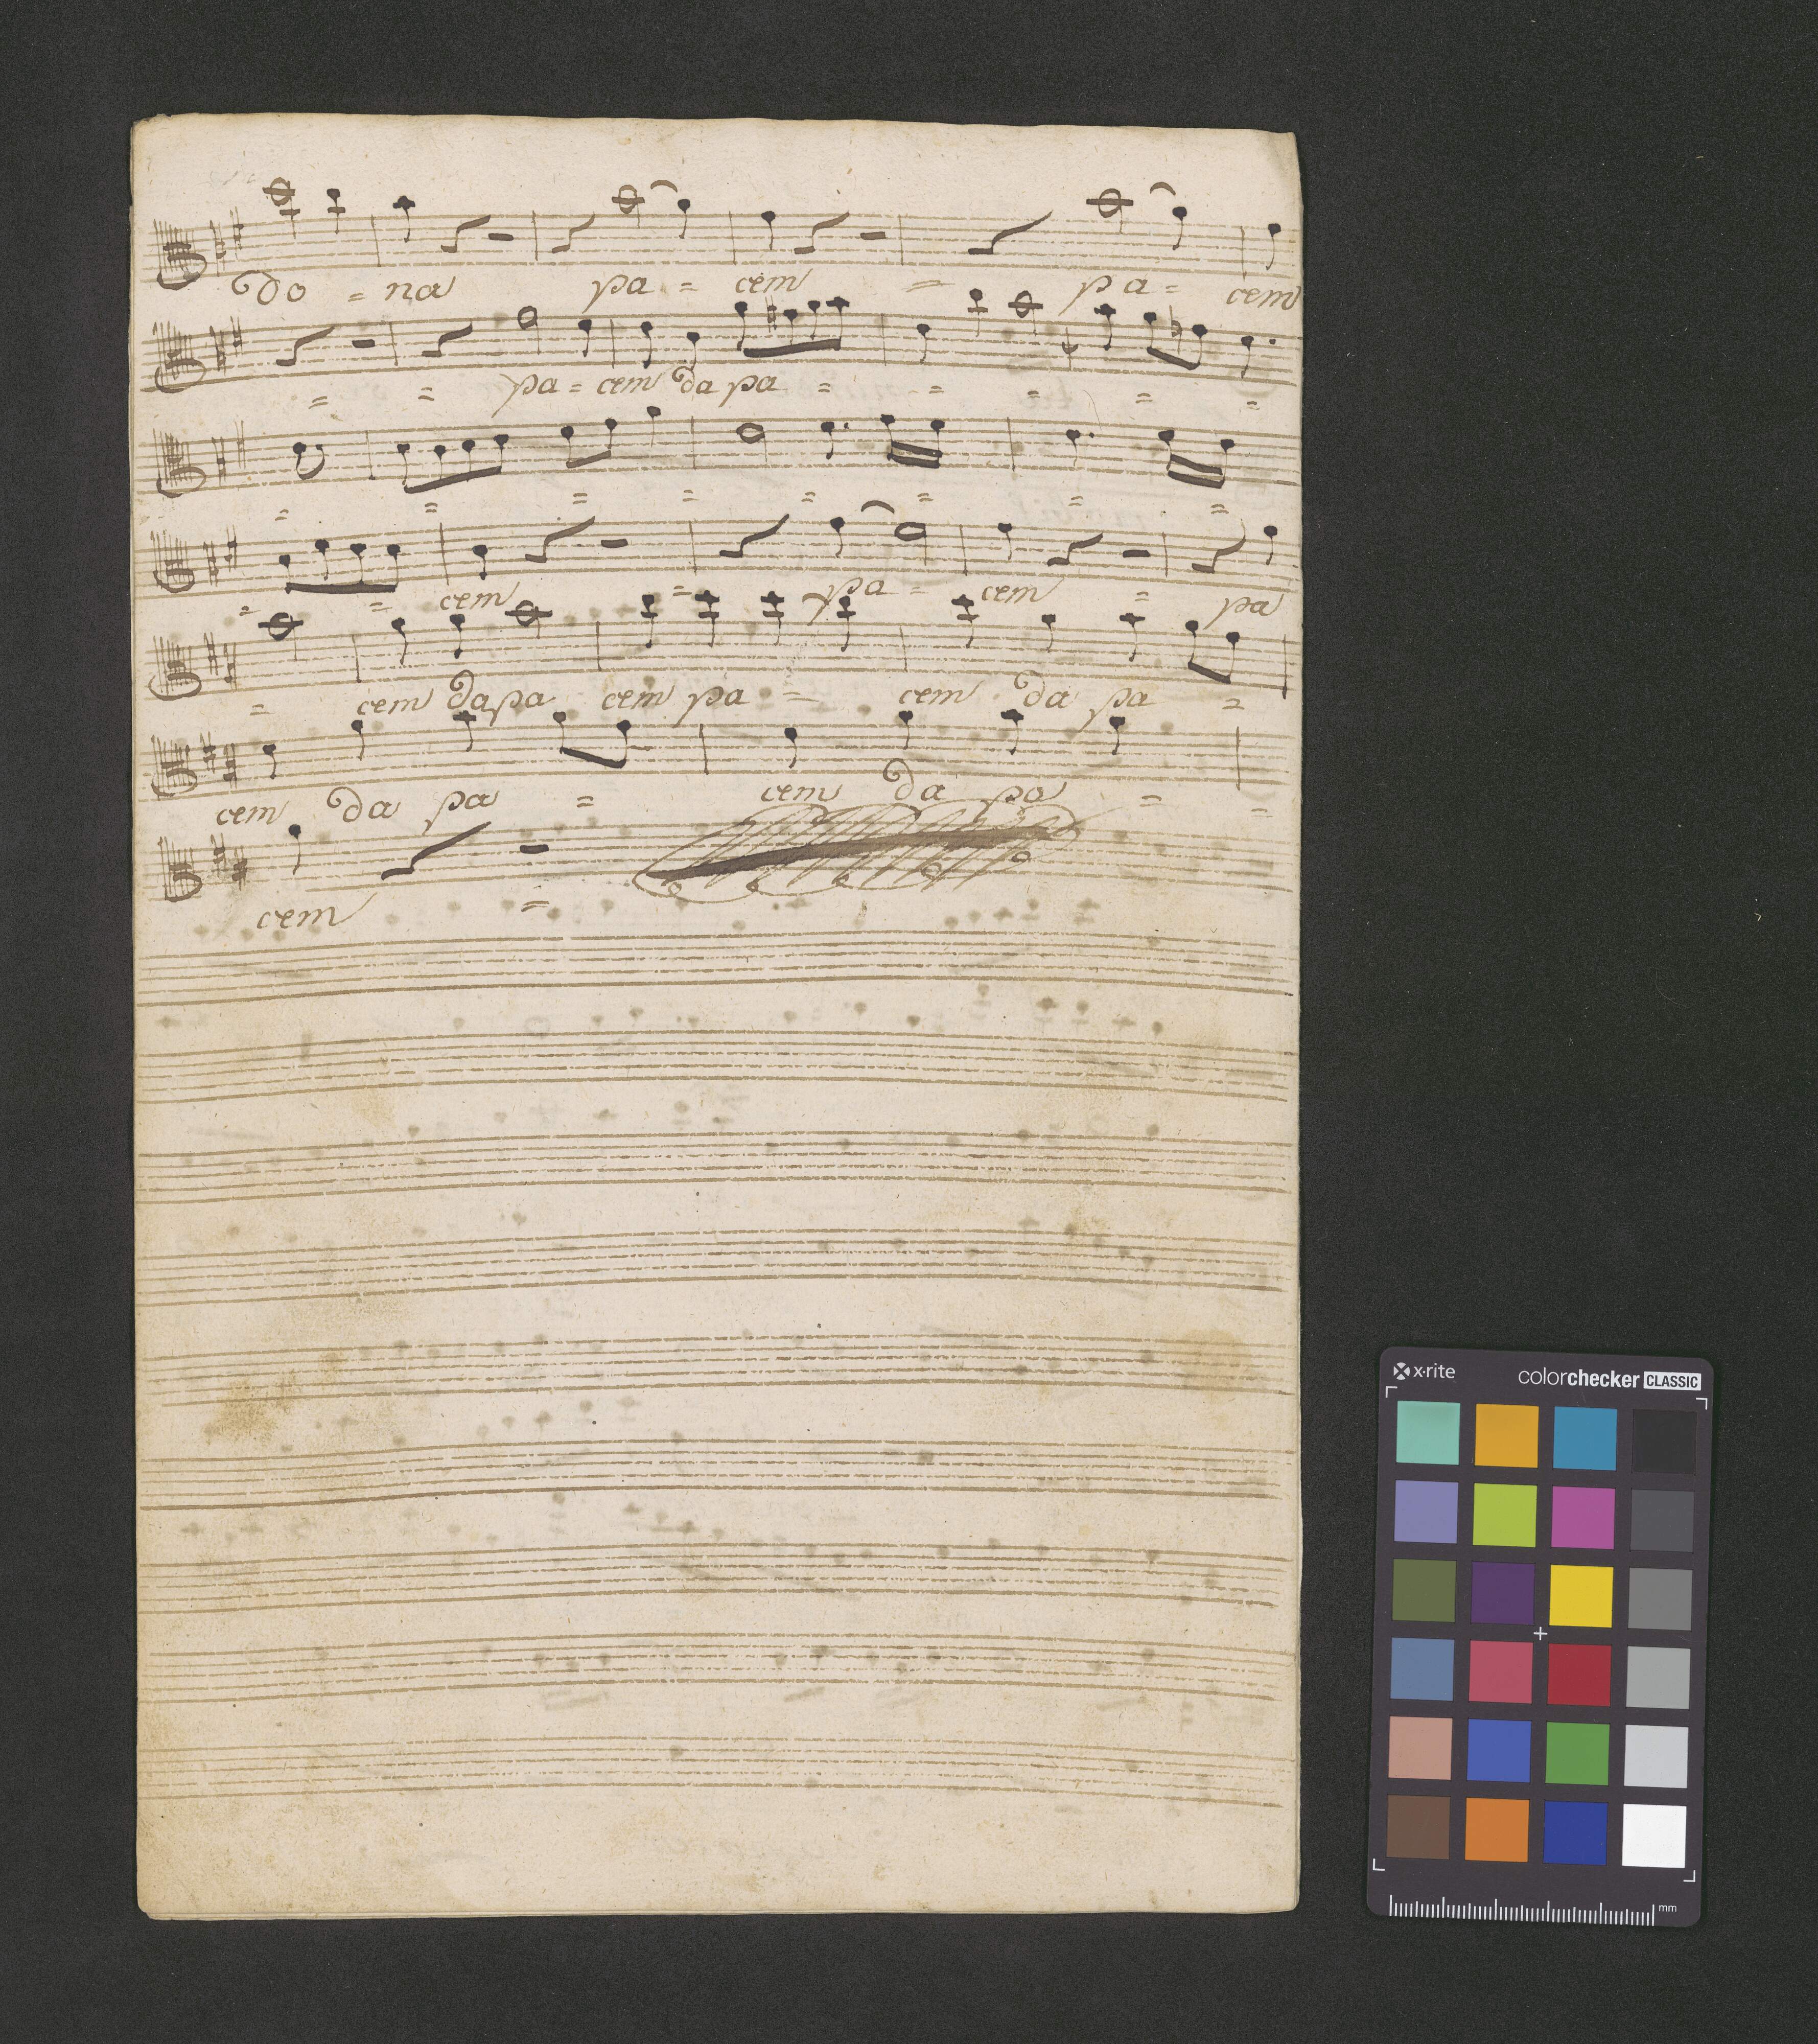 Do = na pa = cem = pa = cem
= = pa = cem da pa = = = = =
= = = = = = = =
= = cem = pa = cem = pa
= cem da pa cem pa = cem da pa =
cem da pa = cem da pa = =
cem =
x·rite colorchecker CLASSIC
mm